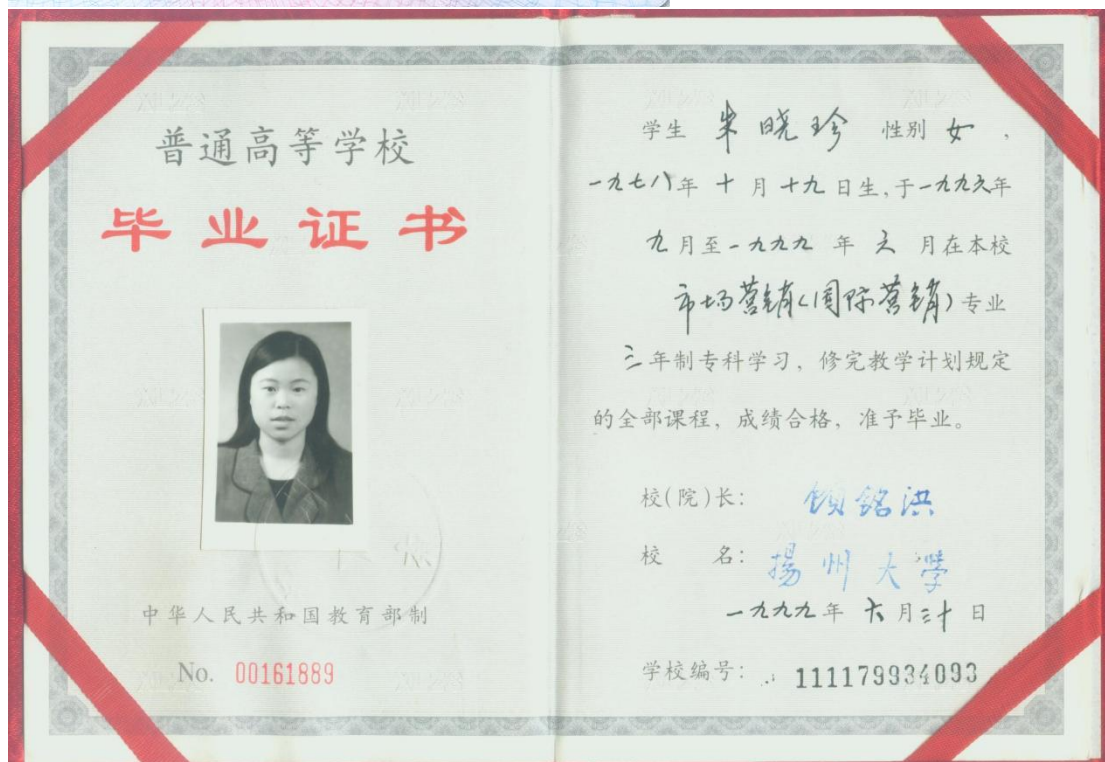 普通高等学校
毕业证书
中华人民共和国教育部制
No. 00161889
学生 朱晓珍 性别 女 ,
一九七八年 十 月 十九 日生,于一九九六年
九月至一九九九 年 六 月在本校
市场营销(国际营销)专业
三年制专科学习, 修完教学计划规定
的全部课程, 成绩合格, 准予毕业。
校(院)长: 顾铭洪
校 名: 揚州大學
一九九九年 六 月三十 日
学校编号: 111179934093